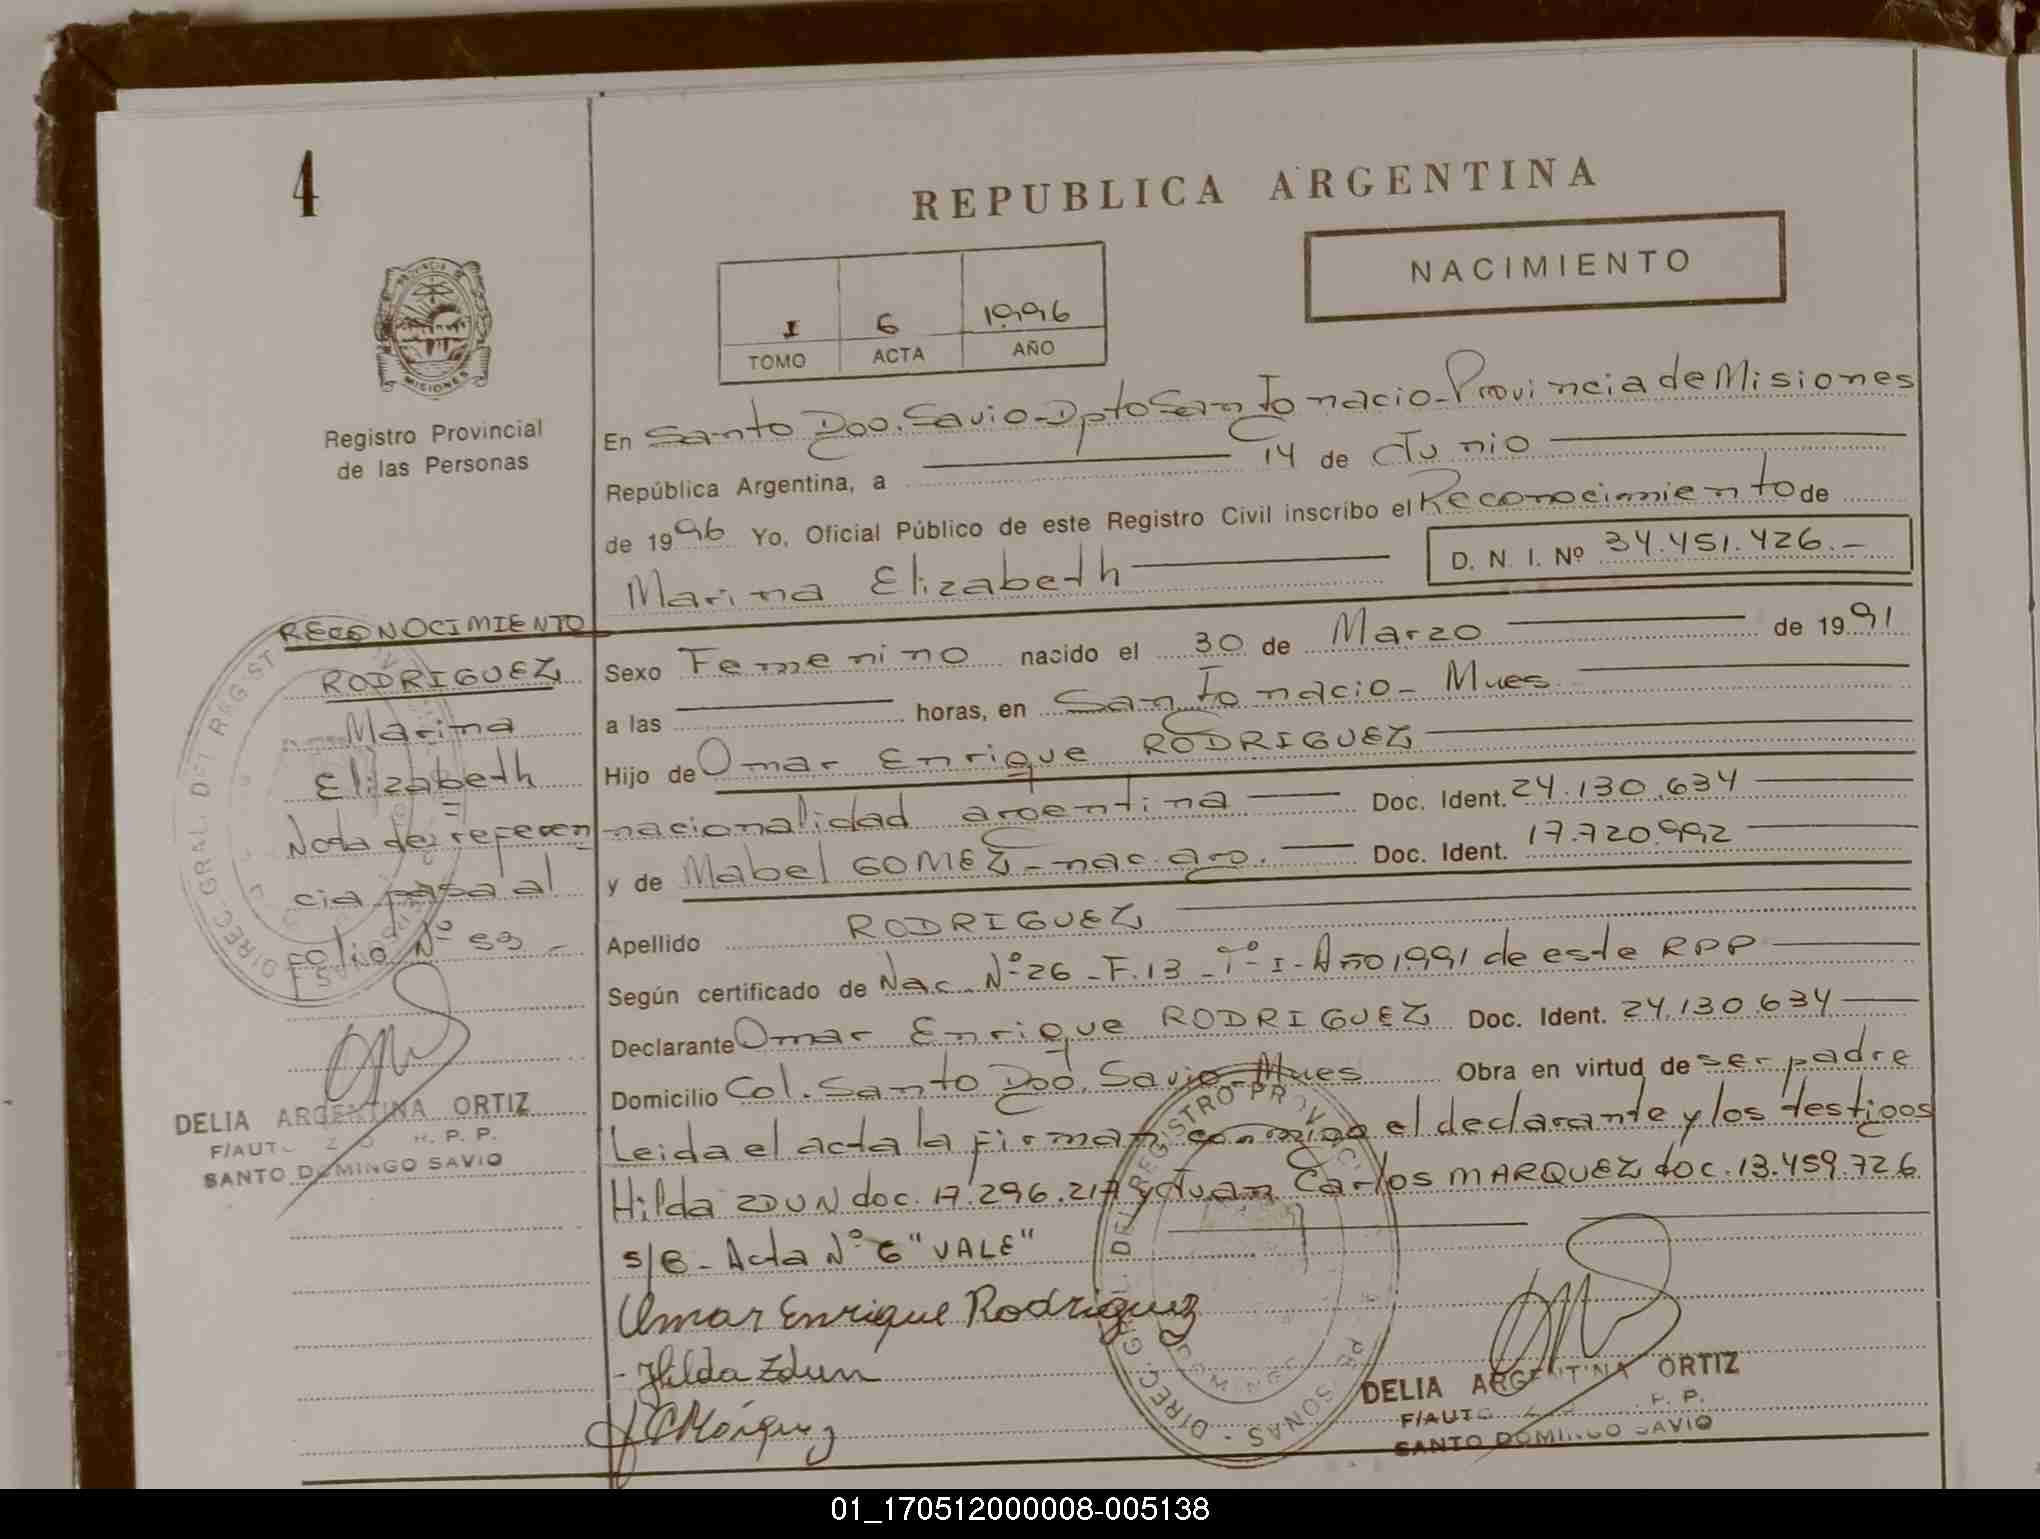 4
REPUBLICA ARGENTINA
NACIMIENTO
I 6 1996
TOMO ACTA AÑO
PROVINCIA DE
MISIONES
Registro Provincial
de las Personas
En Santo Dgo. Savio-Dpto San Ignacio-Provincia de Misiones
República Argentina, a 14 de Junio
de 1996 Yo, Oficial Público de este Registro Civil inscribo el Reconocimiento de
Marina Elizabeth D. N. I. Nº 34.451.426.-
RECONOCIMIENTO
RODRIGUEZ
Marina
Elizabeth
Nota de referen
cia pasa al
folio Nº 53 -
DELIA ARGENTINA ORTIZ
F/AUT R. P. P.
SANTO DOMINGO SAVIO
Sexo Femenino nacido el 30 de Marzo de 1991
a las horas, en San Ignacio- Mnes
Hijo de Omar Enrique RODRIGUEZ
nacionalidad argentina Doc. Ident. 24.130.634
y de Mabel GOMEZ-nac. arg. Doc. Ident. 17.720.992
Apellido RODRIGUEZ
Según certificado de Nac. Nº 26-F.13-Tº I-Año 1.991 de este RPP
Declarante Omar Enrique RODRIGUEZ Doc. Ident. 24.130.634
Domicilio Col. Santo Dgo. Savio-Mnes Obra en virtud de ser padre
Leida el acta la firman conmigo el declarante y los testigos
Hilda ZDUN doc. 17.296.217 y Juan Carlos MARQUEZ doc. 13.459.726
S/B- Acta Nº 6 "VALE"
Omar Enrique Rodriguez
- Hilda Zdun
J C Márquez
DIREC. GRAL. DEL REGISTRO PROVINCIAL
DELIA ARGENTINA ORTIZ
F/AUT R. P. P.
SANTO DOMINGO SAVIO
01_170512000008-005138